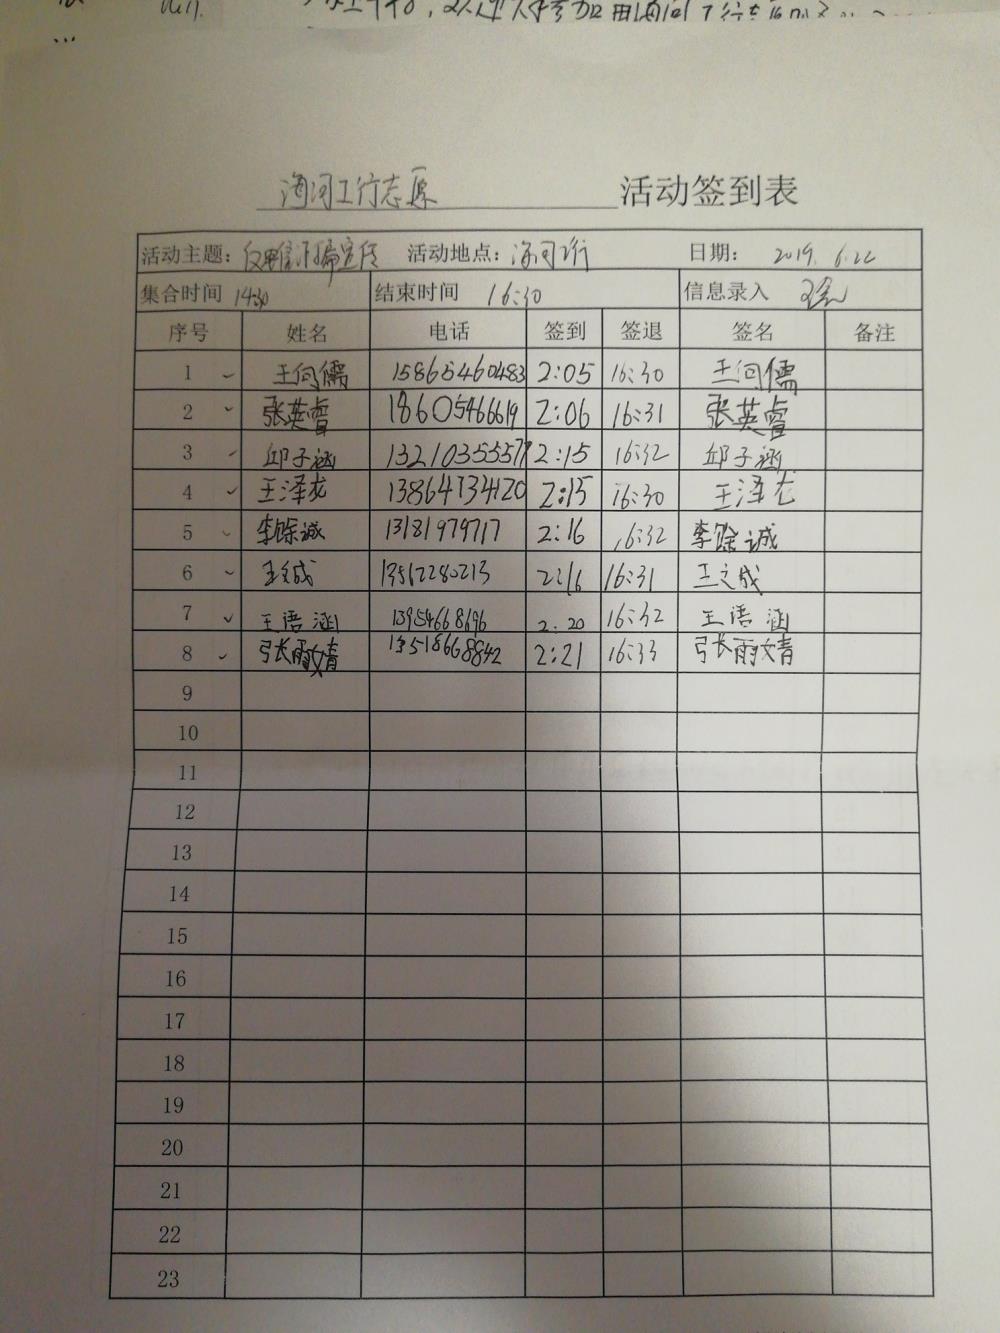 海河工行志愿 活动签到表
活动主题：反电信诈骗宣传 活动地点：海河工行 日期： 2019.6.22
集合时间 14:30 结束时间 16:30 信息录入
序号 姓名 电话 签到 签退 签名 备注
1 王向儒 15865460483 2:05 16:30 王向儒
2 张英睿 18605466619 2:06 16:31 张英睿
3 邱子涵 13210355577 2:15 16:32 邱子涵
4 王泽龙 13864734120 2:15 16:30 王泽龙
5 李馀诚 13181979717 2:16 16:32 李馀诚
6 王文成 13562280213 2:16 16:31 王文成
7 王语涵 13954668696 2:20 16:32 王语涵
8 张雨婧 13518668842 2:21 16:33 张雨婧
9
10
11
12
13
14
15
16
17
18
19
20
21
22
23